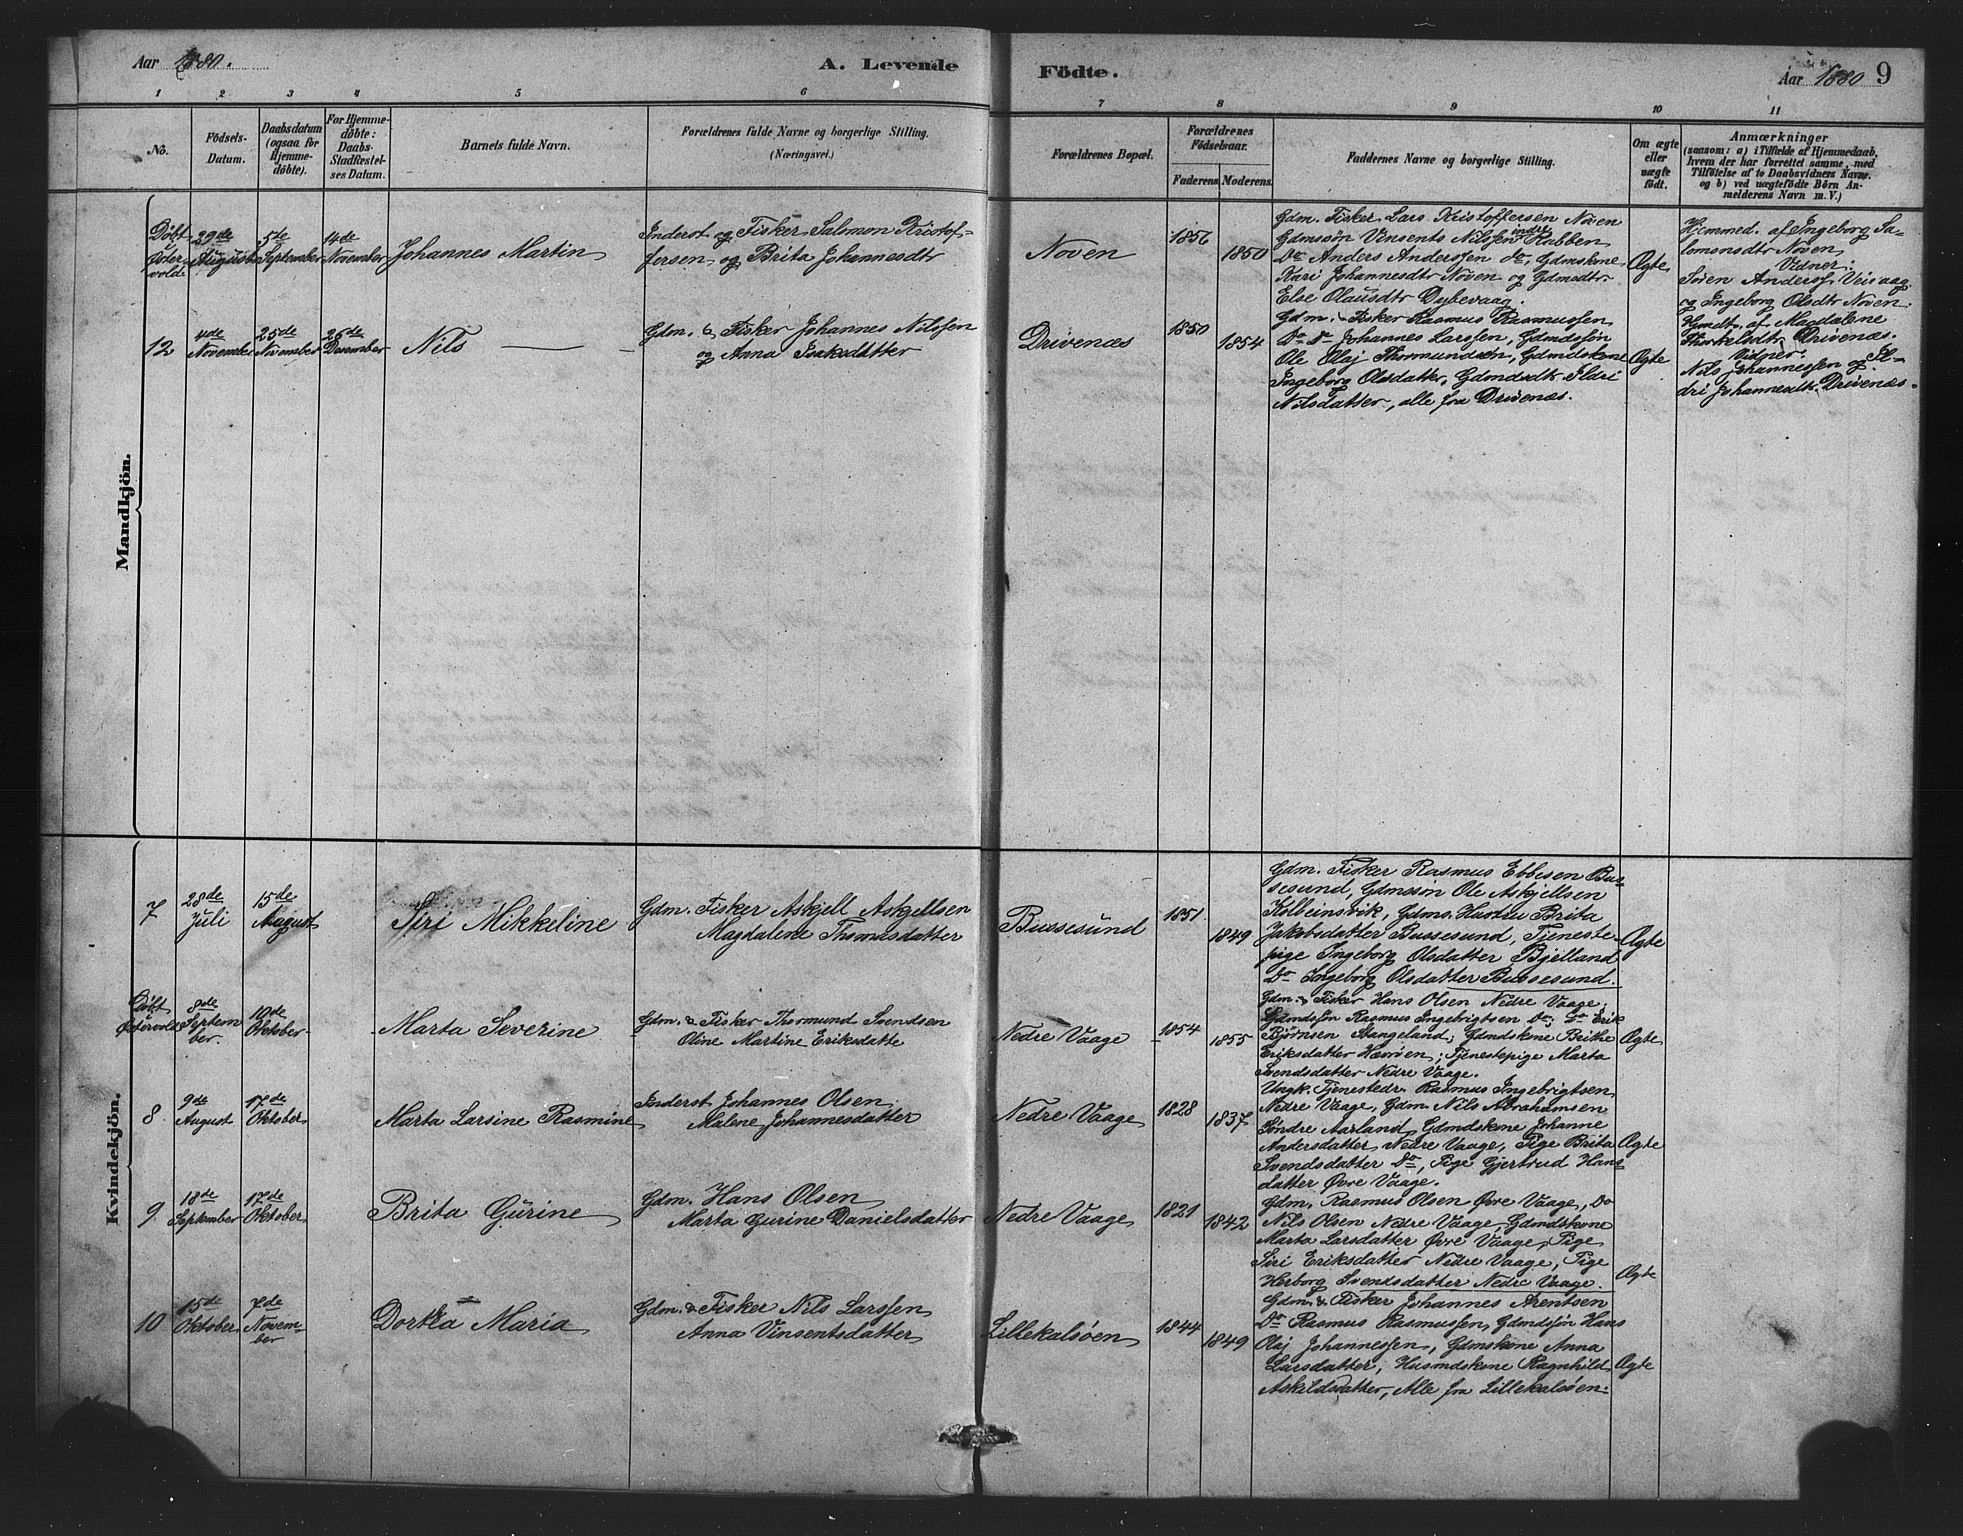 Aar 1880.
A. Levende
Födte.
Aar 1880 9
1 2 3 4 5 6 7 8 9 10 11
No.
Födsels-
Datum.
Daabsdatum
(ogsaa for
Hjemme-
döbte).
For Hjemme-
döbte:
Daabs-
Stadfæstel-
ses Datum.
Barnets fulde Navn.
Forældrenes fulde Navne og borgerlige Stilling.
(Næringsvei.)
Forældrenes Bopæl.
Forældrenes
Födselsaar.
Faderens. Moderens.
Faddernes Navne og borgerlige Stilling.
Om ægte
eller
uægte
födt.
Anmærkninger
(saasom: a) i Tilfælde af Hjemmedaab,
hvem der har forrettet samme, med
Tilföielse af to Daabsvidners Navne.
og b) ved uægtefödte Börn An-
melderens Navn m. V.)
Mandkjön.
Döbt
Öster-
volde
29de
August
5te
September
14de
November
Johannes Martin
Inderst og Fisker Salomon Kristof-
fersen og Brita Johannesdtr
Noven
1856
1850
Gdm. Fisker Lars Kristoffersen Noven
Gdmsøn Vinsents Nilssen indre Rabben
Do Anders Anderssen do, Gdmskone
Kari Johannesdtr Noven og Gdmsdtr
Else Olausdtr Dybevaag.
Ægte
Hjemmed. af Ingeborg Sa-
lomonsdtr Noven
Vidner:
Søren Anderss. Veivaag
og Ingeborg Olsdtr Noven.
12
4de
November
25de
November
26de
Desember
Nils
Gdm. & Fisker Johannes Nilssen
og Anna Isaksdatter
Drivenæs
1850
1854
Gdm. Fisker Rasmus Rasmussen
Do Do Johannes Larssen, Gdmdssøn
Ole Olaj Thormundsen, Gdmdskone
Ingeborg Olsdatter, Gdmdsdtr Ildri
Nilsdatter, alle fra Drivenæs.
Ægte
Hjmdt. af Magdalene
Thorkelsdtr Drivenæs.
Vidner:
Nils Johannessen og Il-
dri Johannesdtr. Drivenæs.
Kvindekjön.
7
28de
Juli
15de
August
Siri Mikkeline
Gdm. Fisker Askjell Askjellsen
Magdalene Thomasdatter
Bussesund
1851
1849
Gdm. Fisker Rasmus Ebbesen Bus-
sesund, Gdmssøn Ole Askjellsen
Kolbeinsvik, Gdms. Hustru Brita
Jakobsdatter Bussesund, Tjeneste-
pige Ingeborg Olsdatter Bjelland
Do Ingeborg Olsdatter Bussesund.
Ægte
Döbt
Østervold
8de
Septem
ber
10de
Oktober
Marta Severine
Gdm. & Fisker Thormund Svendsen
Oline Martine Eriksdatte
Nedre Vaage
1854
1855
Gdm. & Fisker Hans Olsen Nedre Vaage;
Gdmdssøn Rasmus Ingebrigtsen Do; Do Erik
Bjørnsen Stangeland; Gdmdskone Brithe
Eriksdatter Hævrøen; Tjenestepige Marta
Svendsdatter Nedre Vaage.
Ægte
8
9de
August
17de
Oktober
Marta Larsine Rasmine
Inderst Johannes Olsen
Malene Johannesdatter
Nedre Vaage
1828
1837
Ungk. Tjenestedr. Rasmus Ingebrigtsen
Nedre Vaage, Gdm. Nils Abrahamsen
Søndre Aarland, Gdmdskone Johanne
Andersdatter, Nedre Vaage, Pige Brita
Svendsdatter Do, Pige Gjertrud Hans
datter Øvre Vaage.
Ægte
9
18de
September
17de
Oktober
Brita Gurine
Gdm. Hans Olsen
Marta Gurine Danielsdatter
Nedre Vaage
1821
1842
Gdm. Rasmus Olsen Øvre Vaage, Do
Nils Olsen Nedre Vaage, Gdmdskone
Marta Larsdatter Øvre Vaage, Pige
Siri Eriksdatter Nedre Vaage, Pige
Herborg Svendsdatter Nedre Vaage.
Ægte
10
15de
Oktober
7de
Novem-
ber
Dorthea Maria
Gdm. & Fisker Nils Larssen
Anna Vinsentsdatter
Lillekalsøen
1844
1849
Gdm. & Fisker Johannes Arentsen
Do Rasmus Rasmussen, Gdmdssøn Hans
Olaj Johannessen, Gdmskone Anna
Larsdatter, Husmdskone Ragnhild
Askildsdatter, Alle fra Lillekalsøen.
Ægte